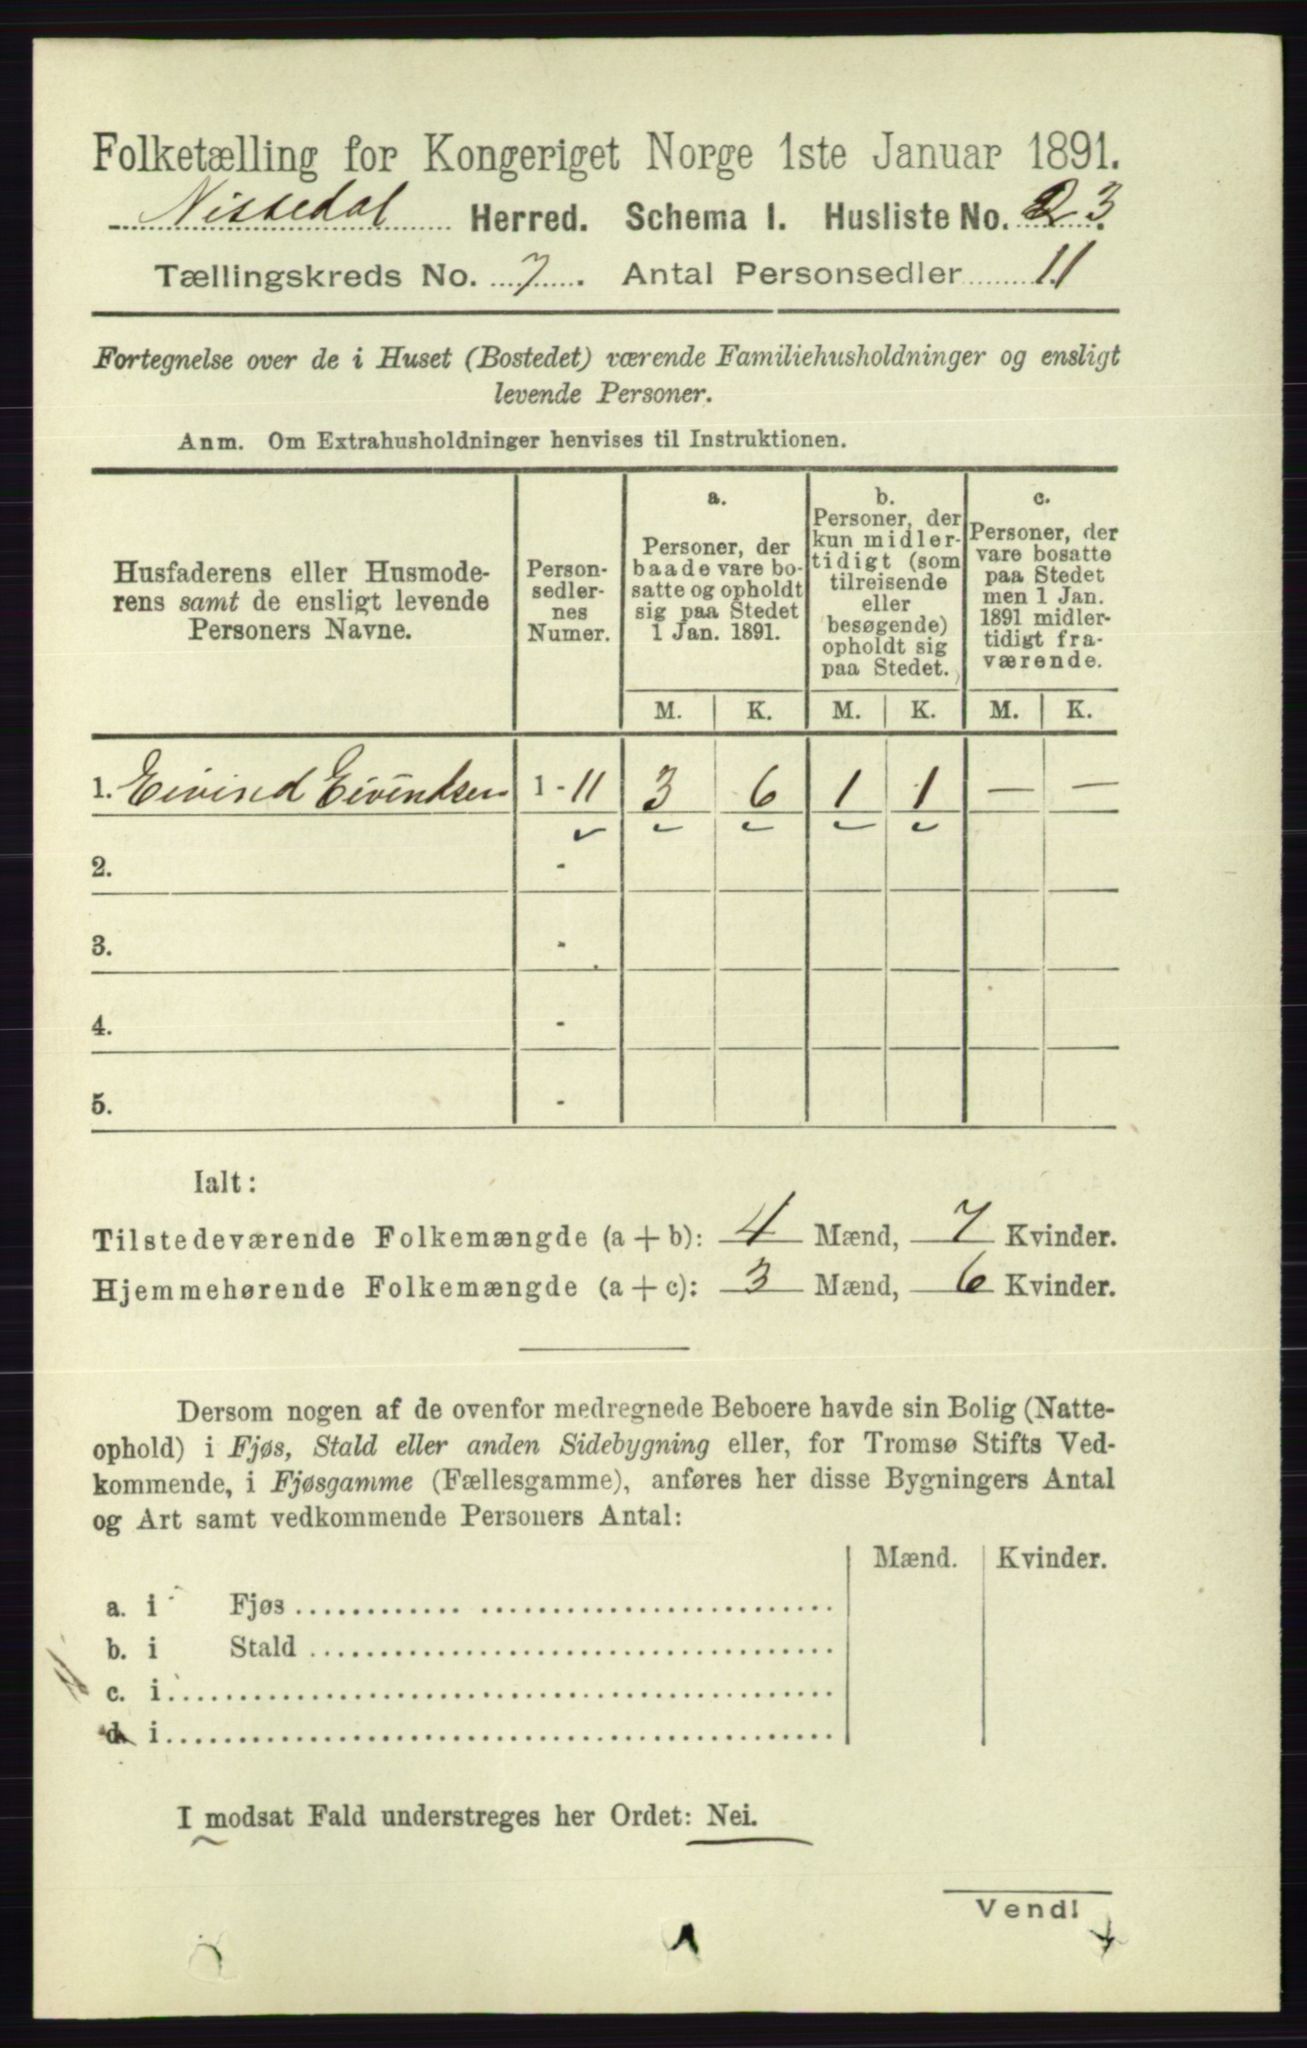 Folketælling for Kongeriget Norge 1ste Januar 1891.
Nissedal Herred. Schema 1. Husliste No. 23
Tællingskreds No. 7. Antal Personsedler 11
Fortegnelse over de i Huset (Bostedet) værende Familiehusholdninger og ensligt
levende Personer.
Anm. Om Extrahusholdninger henvises til Instruktionen.
Husfaderens eller Husmode-
rens samt de ensligt levende
Personers Navne.
Person-
sedler-
nes
Numer.
a.
Personer, der
baade vare bo-
satte og opholdt
sig paa Stedet
1 Jan. 1891.
b.
Personer, der
kun midler-
tidigt (som
tilreisende
eller
besøgende)
opholdt sig
paa Stedet.
c.
Personer, der
vare bosatte
paa Stedet
men 1 Jan.
1891 midler-
tidigt fra-
værende.
M. K. M. K. M. K.
1. Eivind Eivindsen 1 - 11 3 6 1 1 — —
2. -
3. -
4. -
5. -
Ialt:
Tilstedeværende Folkemængde (a + b): 4 Mænd, 7 Kvinder.
Hjemmehørende Folkemængde (a + c): 3 Mænd, 6 Kvinder.
Dersom nogen af de ovenfor medregnede Beboere havde sin Bolig (Natte-
ophold) i Fjøs, Stald eller anden Sidebygning eller, for Tromsø Stifts Ved-
kommende, i Fjøsgamme (Fællesgamme), anføres her disse Bygningers Antal
og Art samt vedkommende Personers Antal:
Mænd. Kvinder.
a. i Fjøs
b. i Stald
c. i
d. i
I modsat Fald understreges her Ordet: Nei.
Vend!